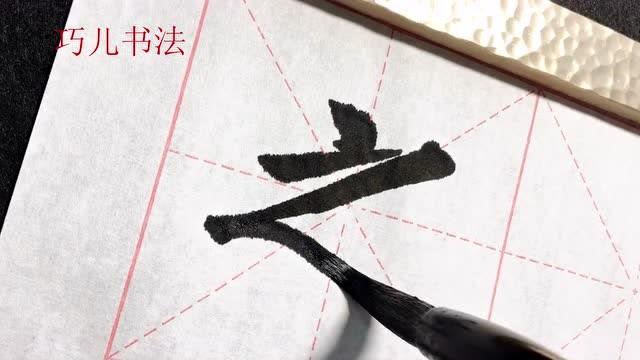 巧儿书法
之